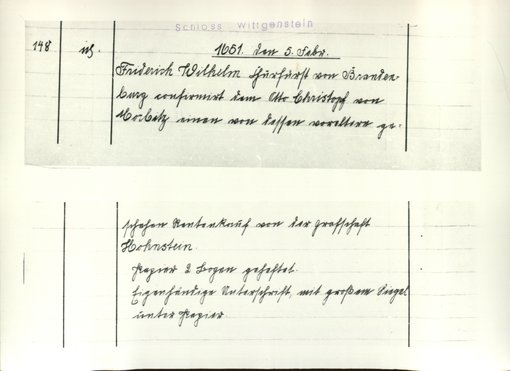 Schloss Wittgenstein
148 1651. den 5. Febr.
Friderich Wilhelm Churfürst von Branden-
burg confirmirt dem Otto Christoph von
einen von dessen voreltern ge-
schehen Rentenkauf von der Grafschaft
Hohnstein.
Papier 2 Bogen geheftet.
Eigenhändige Unterschrift, mit großem Siegel
unter Papier.